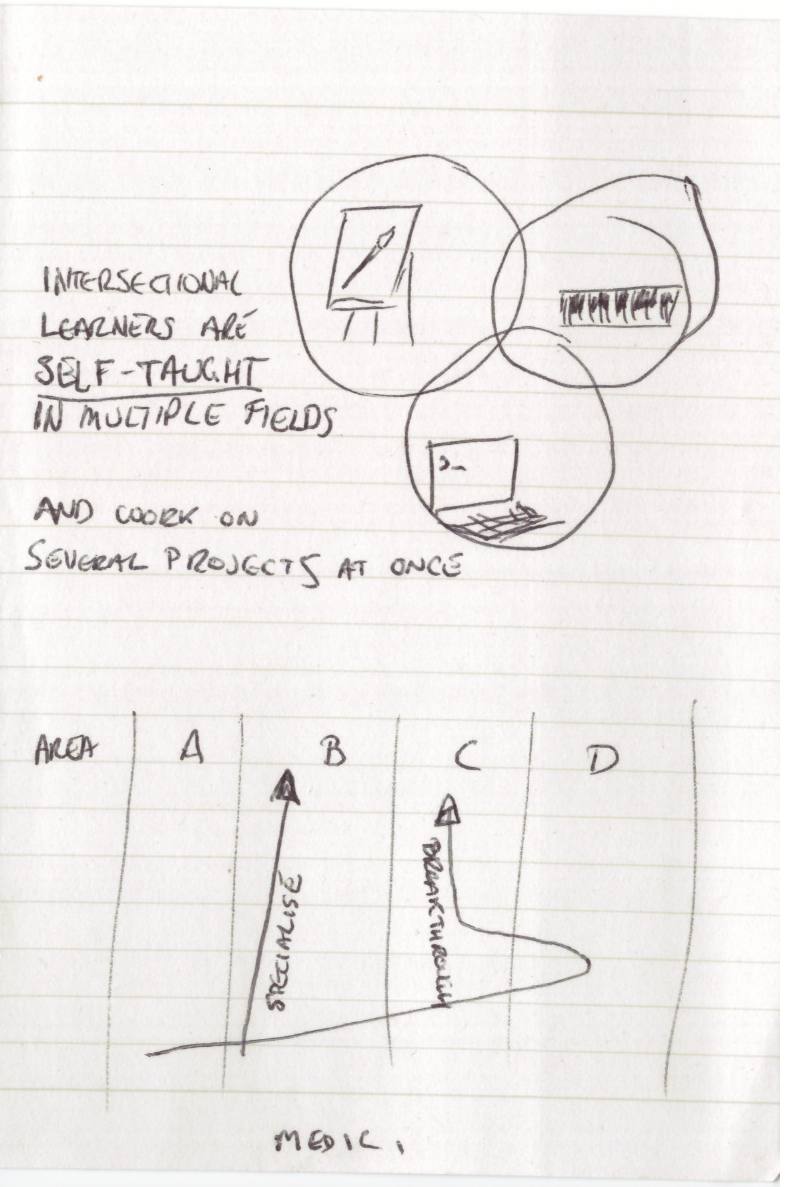 INTERSECTIONAL
LEARNERS ARE
SELF-TAUGHT
IN MULTIPLE FIELDS
AND WORK ON
SEVERAL PROJECTS AT ONCE
>_
AREA A B C D
SPECIALISE
BREAKTHROUGH
MEDICI